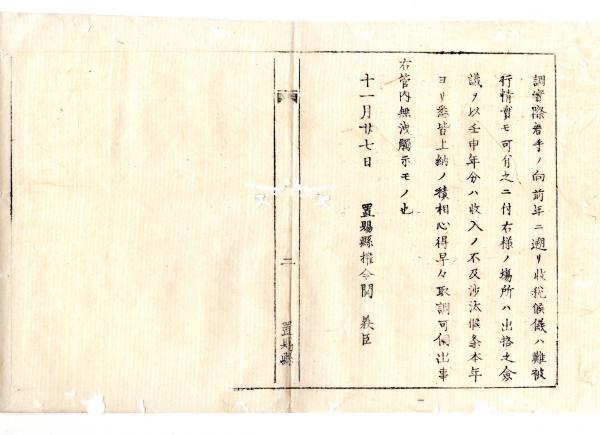 調實際着手ノ向前年ニ遡リ收税候儀ハ難被
行情實モ可有之ニ付右様ノ場所ハ出格之僉
議ヲ以壬申年分ハ收入ノ不及沙汰候条本年
ヨリ悉皆上納ノ積相心得早々取調可伺出事
右管内無洩觸示モノ也
十一月廿七日 置賜縣権令関 義臣
二
置賜縣